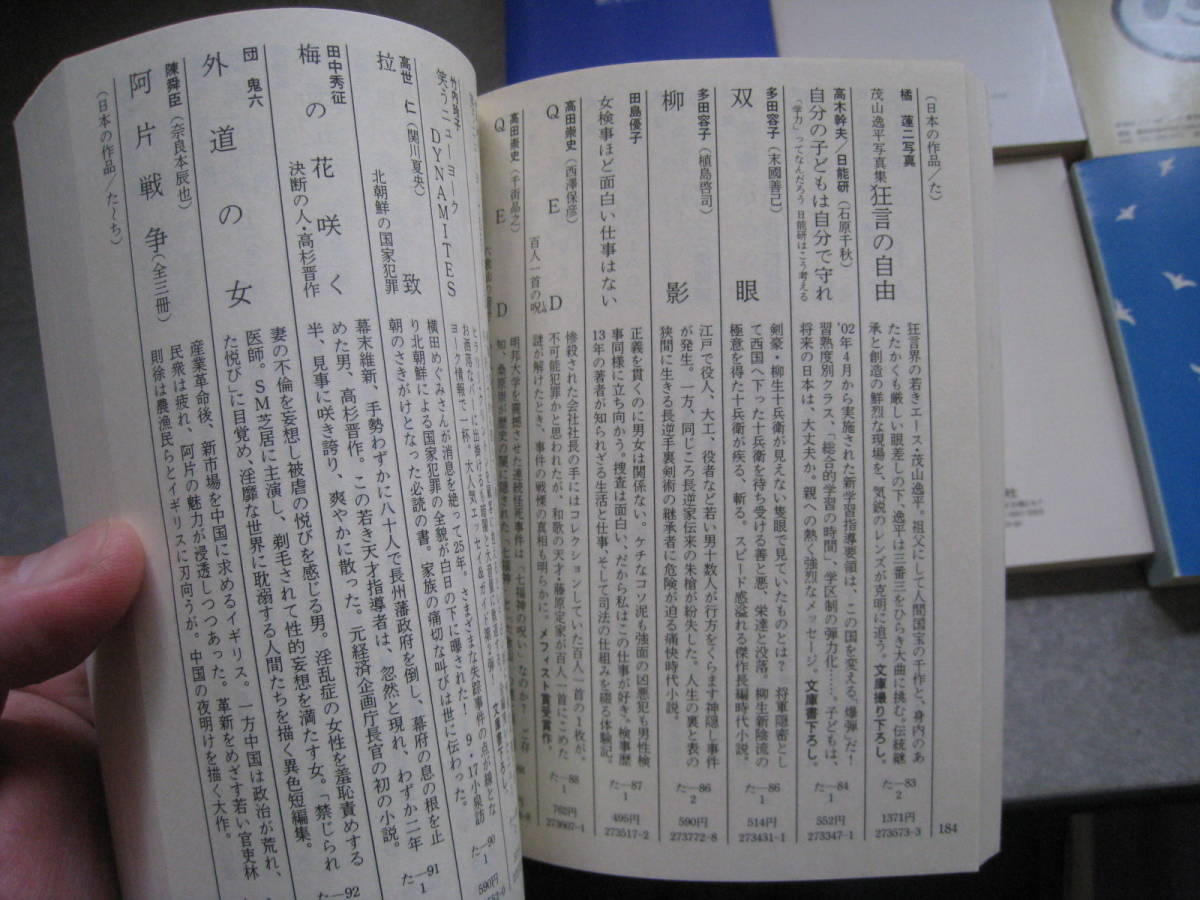 (日本の作品/た)
橘 蓮二写真
茂山逸平写真集 狂言の自由
狂言界の若きエース・茂山逸平。祖父にして人間国宝の千作と、身内のあ
たたかくも厳しい眼差しの下、逸平は三番三をひらき大曲に挑む。伝統継
承と創造の鮮烈な現場を、気鋭のレンズが克明に追う。文庫撮り下ろし。
た―83
2
1371円
273573-3
高木幹夫/日能研(石原千秋)
自分の子どもは自分で守れ
「学力」ってなんだろう 日能研はこう考える
'02年4月から実施された新学習指導要領は、この国を変える「爆弾」だ!
習熟度別クラス、「総合的学習の時間」、学区制の弾力化……。子どもは、
将来の日本は、大丈夫か。親への熱く強烈なメッセージ。文庫書下ろし。
た―84
1
552円
273347-1
多田容子(末國善己)
双眼
剣豪・柳生十兵衛が見えない隻眼で見ていたものとは? 将軍隠密とし
て西国へ下った十兵衛を待ち受ける善と悪、栄達と没落。柳生新陰流の
極意を得た十兵衛が疾る、斬る。スピード感溢れる傑作長編時代小説。
た―86
1
514円
273431-1
多田容子(植島啓司)
柳影
江戸で役人、大工、役者など若い男十数人が行方をくらます神隠し事件
が発生。一方、同じころ長逆家伝来の朱槍が紛失した。人生の裏と表の
狭間に生きる長逆手裏剣術の継承者に危険が迫る痛快時代小説。
た―86
2
590円
273772-8
田島優子
女検事ほど面白い仕事はない
正義を貫くのに男女は関係ない。ケチなコソ泥も強面の凶悪犯も男性検
事同様に立ち向かう。捜査は面白い、だから私はこの仕事が好き。検事歴
13年の著者が知られざる生活と仕事、そして司法の仕組みを綴る体験記。
た―87
1
495円
273517-2
高田崇史(西澤保彦)
QED
百人一首の呪
惨殺された会社社長の手にはコレクションしていた百人一首の1枚が。
不可能犯罪かと思われたが、和歌の天才・藤原定家が百人一首にこめた
謎が解けたとき、事件の戦慄の真相も明らかに。メフィスト賞受賞作。
た―88
1
762円
273607-1
高田崇史
QED
明邦大学を震撼させた連続怪死事件は「七福神の呪い」なのか?
184
笑うニューヨーク DYNAMITES
ヨーク情報で一杯。大人気エッセイ&ガイド
た―90
1
590円
高世 仁(関川夏央)
拉致
北朝鮮の国家犯罪
横田めぐみさんが消息を絶って25年。さまざまな失踪事件の点が線とな
り北朝鮮による国家犯罪の全貌が白日の下に曝された! 9・17小泉訪
朝のさきがけとなった必読の書。家族の痛切な叫びは世に伝わった。
た―91
1
田中秀征
梅の花咲く
決断の人・高杉晋作
幕末維新、手勢わずかに八十人で長州藩政府を倒し、幕府の息の根を止
めた男、高杉晋作。この若き天才指導者は、忽然と現れ、わずか二年
半、見事に咲き誇り、爽やかに散った。元経済企画庁長官の初の小説。
た―92
団 鬼六
外道の女
妻の不倫を妄想し被虐の悦びを感じる男。淫乱症の女性を羞恥責めする
医師。SM芝居に主演し、剃毛されて性的妄想を満たす女。「禁じられ
た悦び」に目覚め、淫靡な世界に耽溺する人間たちを描く異色短編集。
陳舜臣(奈良本辰也)
阿片戦争(全三冊)
産業革命後、新市場を中国に求めるイギリス。一方中国は政治が荒れ、
民衆は疲れ、阿片の魅力が浸透しつつあった。革新をめざす若い官吏林
則徐は農漁民らとイギリスに刃向うが。中国の夜明けを描く大作。
(日本の作品/た~ち)